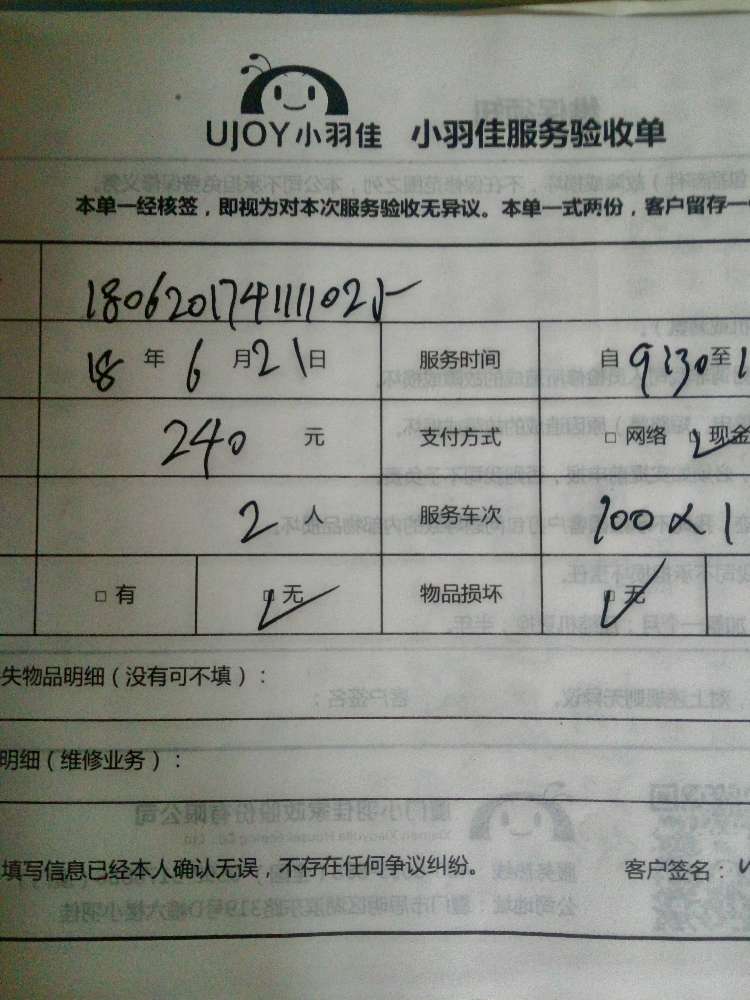 UJOY小羽佳 小羽佳服务验收单
本单一经核签，即视为对本次服务验收无异议。本单一式两份，客户留存一
18 年 6 月 21 日 服务时间 自 9:30 至 1
240 元 支付方式 □ 网络 □ 现金
2 人 服务车次
□ 有 □ 无 物品损坏 □ 无
失物品明细（没有可不填）：
明细（维修业务）：
填写信息已经本人确认无误，不存在任何争议纠纷。 客户签名：